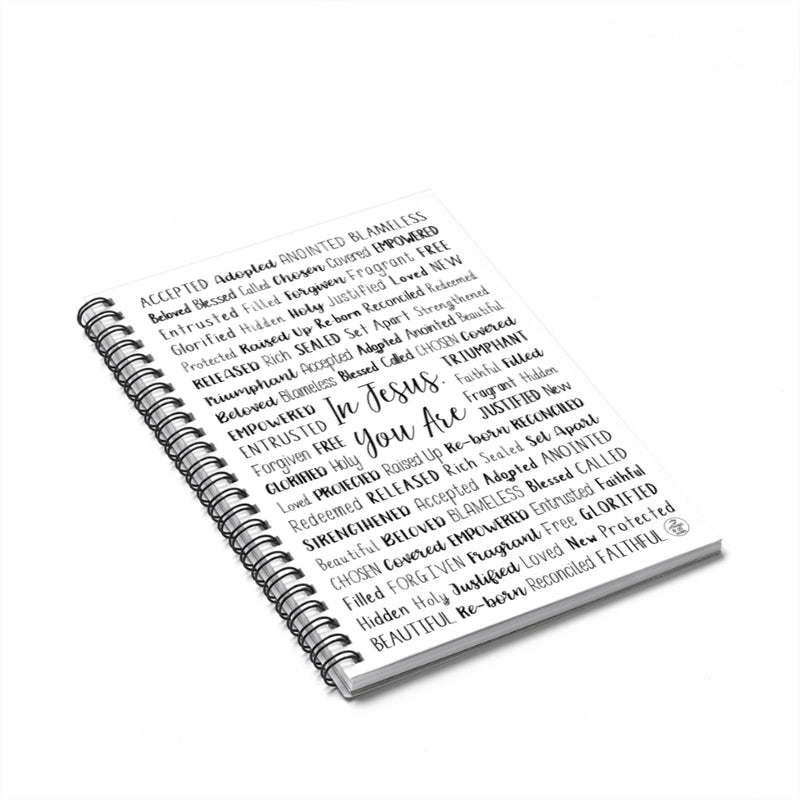 ACCEPTED Adopted ANOINTED BLAMELESS
Beloved Blessed Called Chosen Covered EMPOWERED
Entrusted Filled Forgiven Fragrant FREE
Glorified Hidden Holy Justified Loved NEW
Protected Raised Up Re-born Reconciled Redeemed
RELEASED Rich SEALED Set Apart Strengthened
Triumphant Accepted Adopted Anointed Beautiful
Beloved Blameless Blessed Called CHOSEN Covered
EMPOWERED In Jesus, TRIUMPHANT
ENTRUSTED Faithful Filled
Forgiven FREE you Are Fragrant Hidden
GLORIFIED Holy JUSTIFIED New
Loved PROTECTED Raised Up Re-born RECONCILED
Redeemed RELEASED Rich Sealed Set Apart
STRENGTHENED Accepted Adopted ANOINTED
Beautiful BELOVED BLAMELESS Blessed CALLED
CHOSEN Covered EMPOWERED Entrusted Faithful
Filled FORGIVEN Fragrant Free GLORIFIED
Hidden Holy Justified Loved New Protected
BEAUTIFUL Re-born Reconciled FAITHFUL